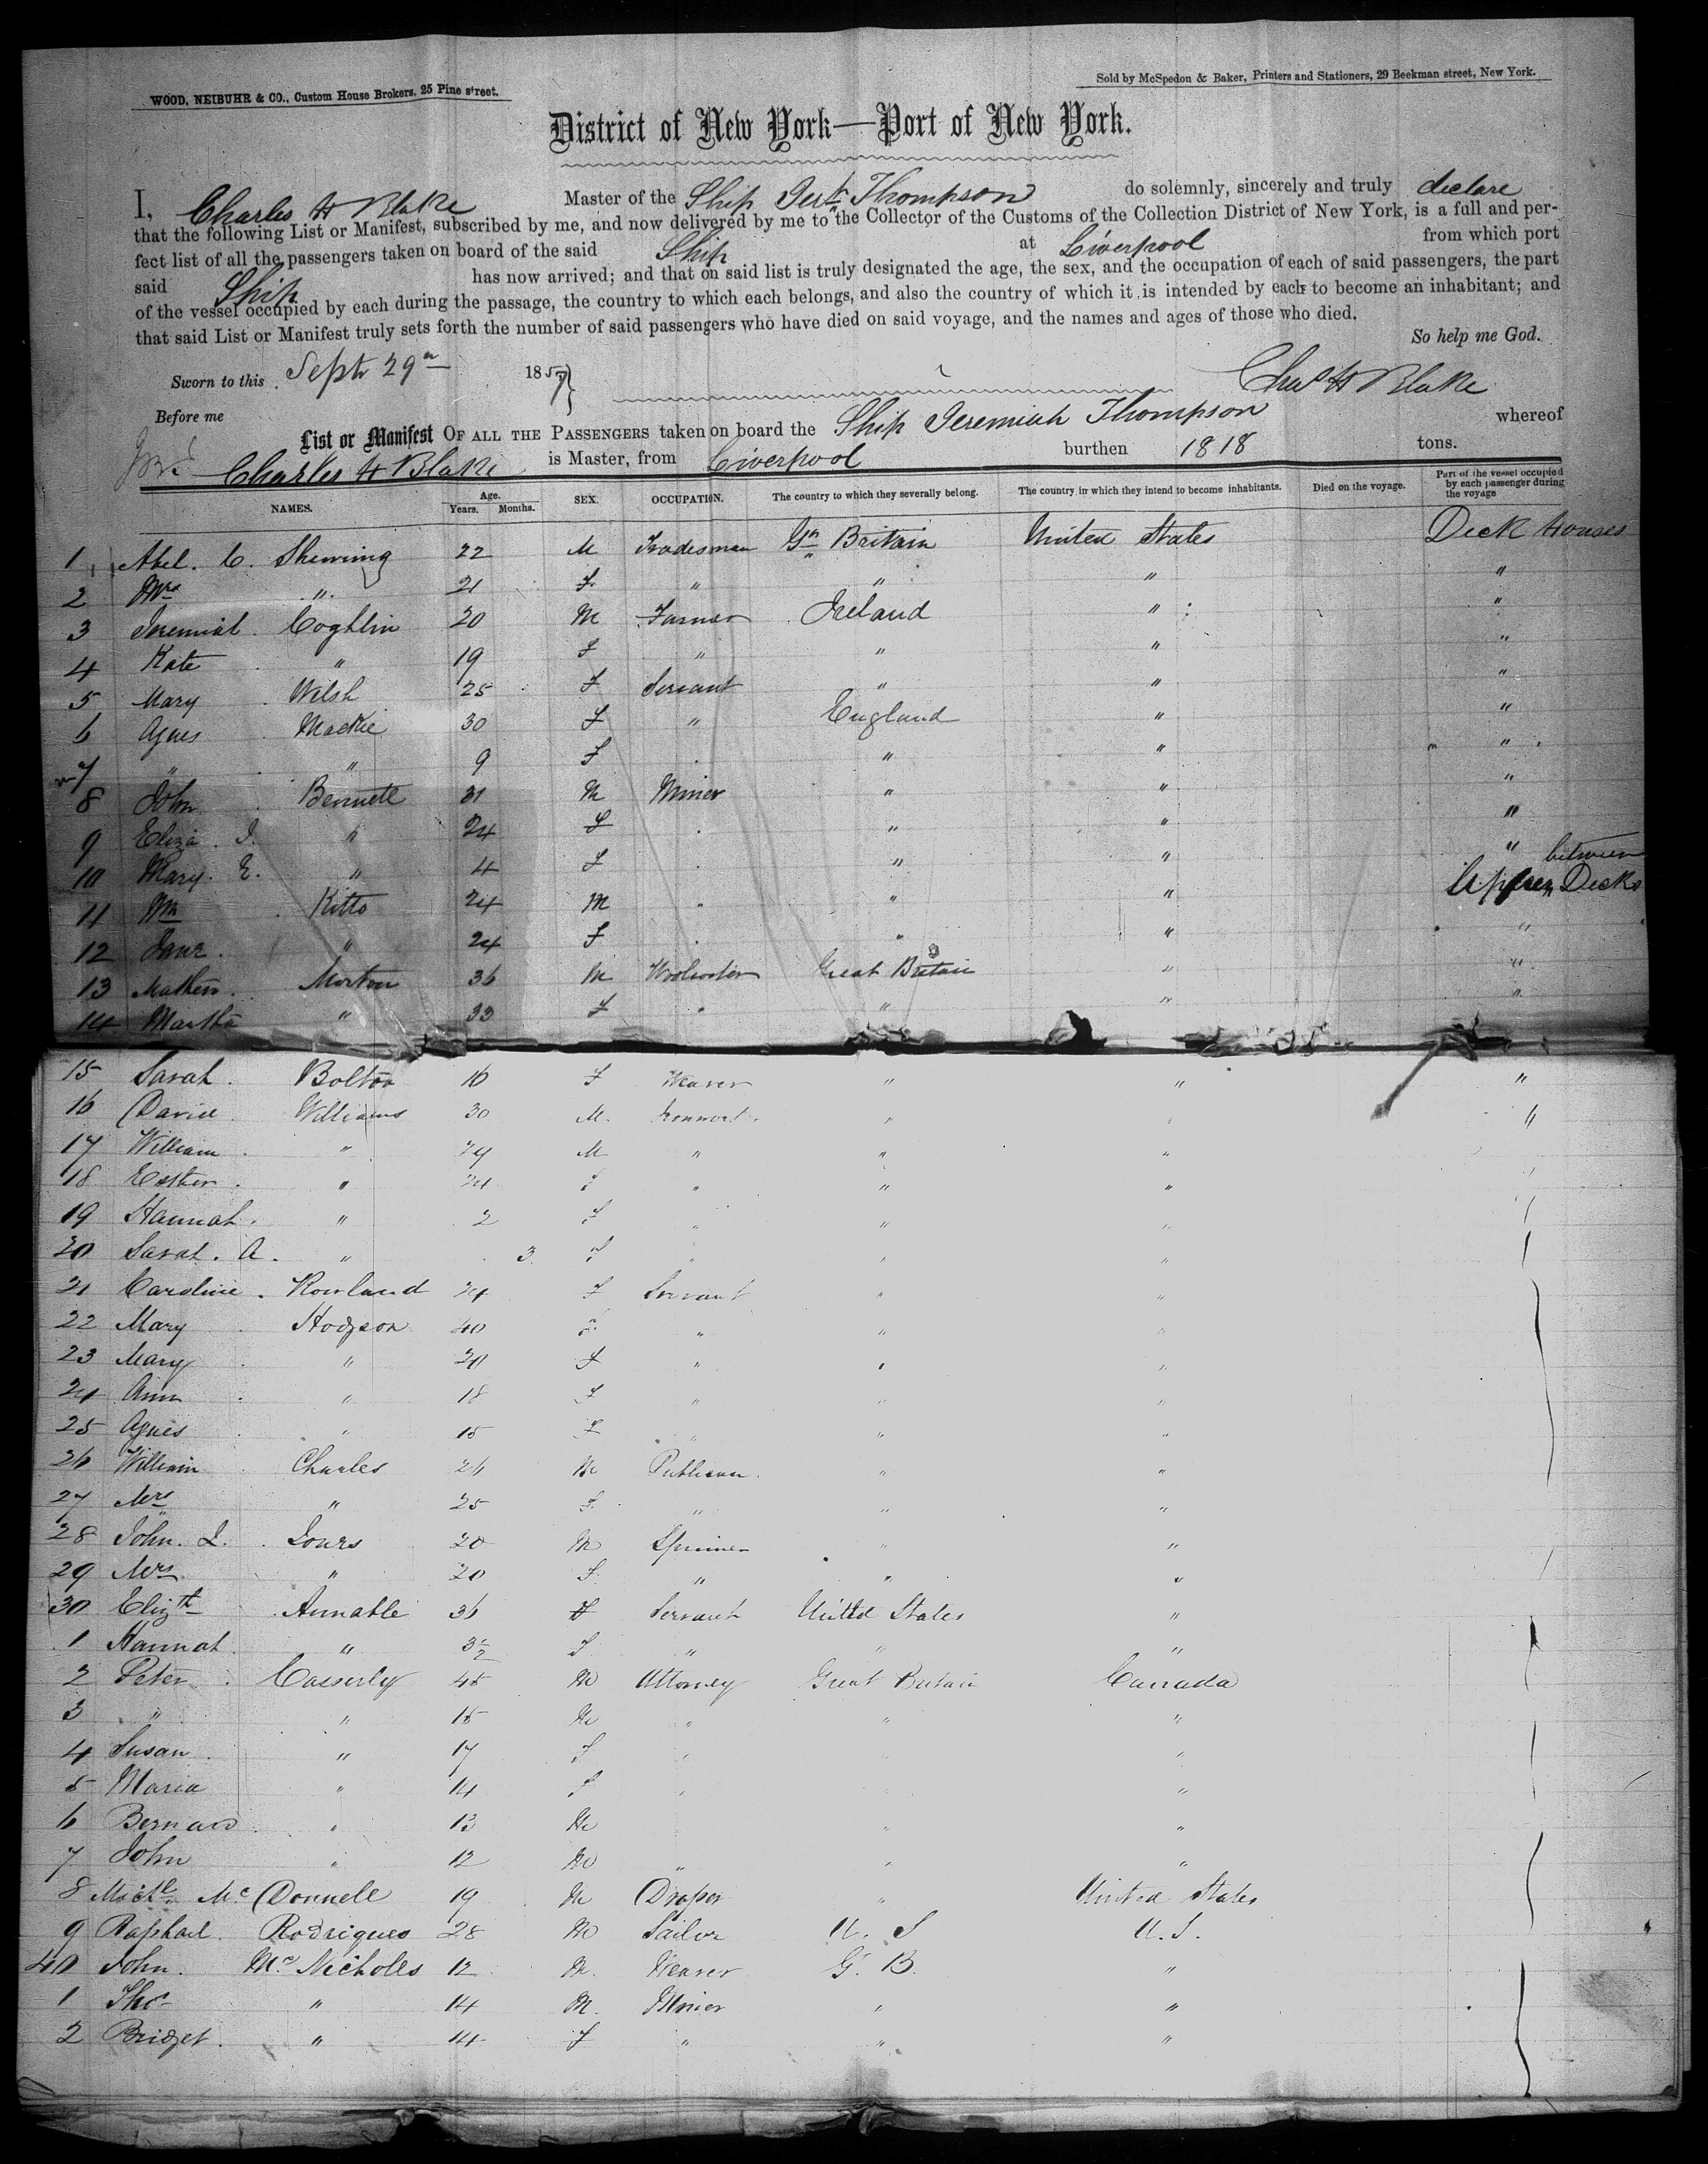 WOOD, NEIBUHR & CO., Custom House Brokers, 25 Pine street.
Sold by McSpedon & Baker, Printers and Stationers, 29 Beekman street, New York.
District of New York—Port of New York.
I, Charles H Blake Master of the Ship Jerh Thompson do solemnly, sincerely and truly declare
that the following List or Manifest, subscribed by me, and now delivered by me to the Collector of the Customs of the Collection District of New York, is a full and per-
fect list of all the passengers taken on board of the said Ship at Liverpool from which port
said Ship has now arrived; and that on said list is truly designated the age, the sex, and the occupation of each of said passengers, the part
of the vessel occupied by each during the passage, the country to which each belongs, and also the country of which it is intended by each to become an inhabitant; and
that said List or Manifest truly sets forth the number of said passengers who have died on said voyage, and the names and ages of those who died.
So help me God.
Sworn to this Sept 29th 1857 Chas H Blake
Before me
List or Manifest OF ALL THE PASSENGERS taken on board the Ship Jeremiah Thompson whereof
Charles H Blake is Master, from Liverpool burthen 1818 tons.
NAMES. Age. Years. Months. SEX. OCCUPATION. The country to which they severally belong. The country in which they intend to become inhabitants. Died on the voyage. Part of the vessel occupied by each passenger during the voyage
1 Abel. C. Shewring 22 M Tradesman Gt Britain United States Deck Houses
2 Mrs " 21 F " " " "
3 Jeremiah Coghlin 20 M Farmer Ireland " "
4 Kate " 19 F " " " "
5 Mary Welsh 25 F Servant " " "
6 Agnes Mackie 30 F " England " "
7 " " 9 F " " "
8 John Bennett 31 M Miner " " "
9 Eliza. J. " 24 F " " "
10 Mary. E. " 4 F " " " between
11 Wm Kitto 24 M " " " Upper Decks
12 Jane " 24 F " " " "
13 Mathew Morton 36 M Great Britain " "
14 Martha " 33 F " " " "
15 Sarah Bolton 16 F Weaver " " "
16 David Williams 30 M " " "
17 William " 29 M " " "
18 Esther " 24 F " " "
19 Hannah " 2 F " " "
20 Sarah. A. " 3 F " " "
21 Caroline Rowland 24 F Servant " "
22 Mary Hodgson 40 F " " "
23 Mary " 20 F " " "
24 Ann " 18 F " " "
25 Agnes " 15 F " " "
26 William Charles 26 M Publican " "
27 Mrs " 25 F " " "
28 John. L. Jones 20 M Spinner " "
29 Mrs " 20 F " " "
30 Elizth Annable 36 F Servant United States "
1 Hannah " 3½ F " " "
2 Peter Casserly 45 M Attorney Great Britain Canada
3 " " 15 M " " "
4 Susan " 17 F " "
5 Maria " 14 F " "
6 Bernard " 13 M " "
7 John " 12 M " " "
8 Michl. Mc Donnell 19 M Draper " United States
9 Raphael Rodrigues 28 M Sailor U. S U. S.
40 John. Mc Nicholls 12 M. Weaver G. B. "
1 Thos " 14 M. Miner " "
2 Bridget " 14 F " " "